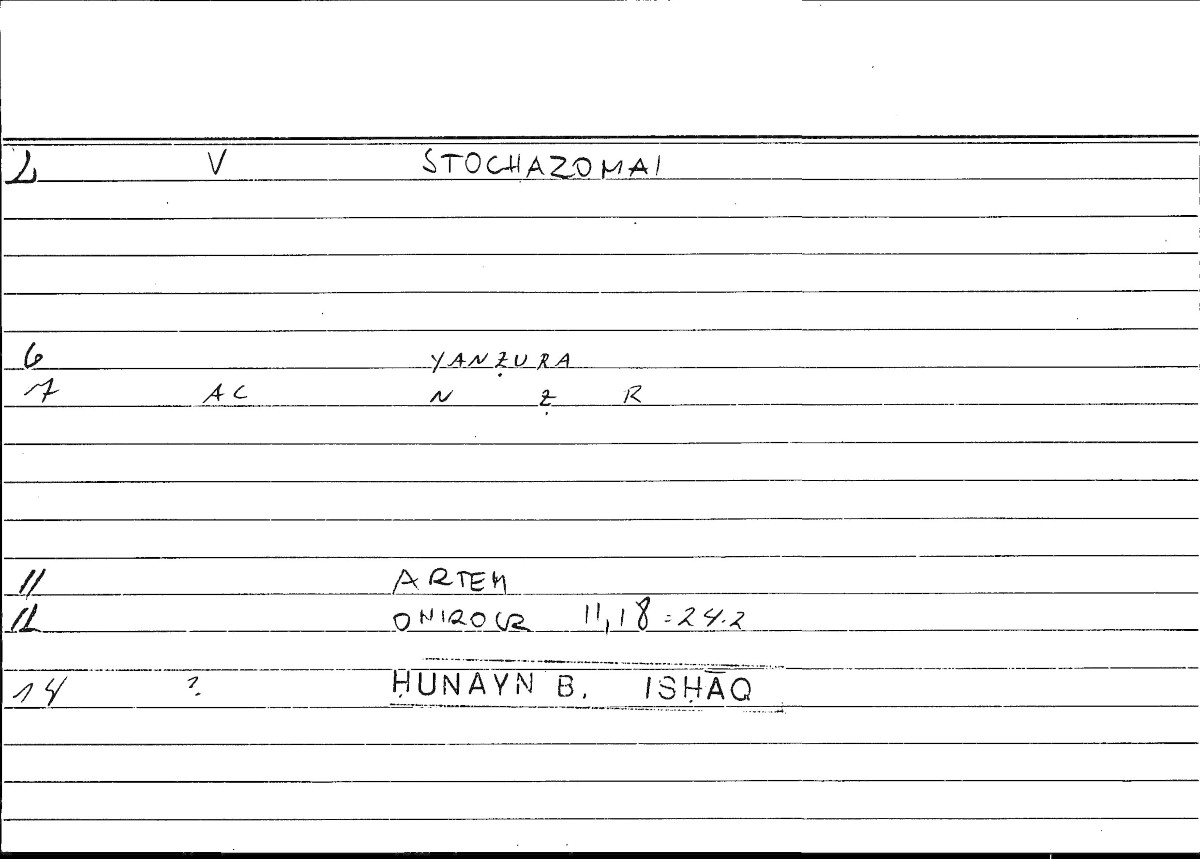 2 V STOCHAZOMAI
6 YANẒURA
7 AC N Ẓ R
11 ARTEM
12 ONIROCR 11,18 = 24.2
14 ? ḤUNAYN B. ISḤĀQ